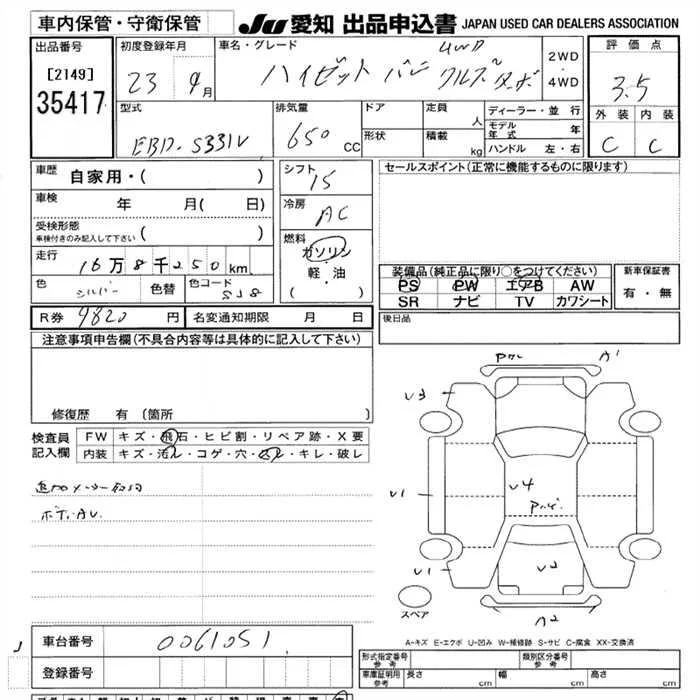 車内保管・守衛保管 JU 愛知 出品申込書 JAPAN USED CAR DEALERS ASSOCIATION
出品番号 初度登録年月 車名・グレード 4WD 2WD・4WD 評価点
[2149] 23 9月 ハイゼット バン クルーズターボ 3.5
35417 型式 排気量 ドア 定員 人 ディーラー・並行 外装 内装
EBD-S331V 650 CC 形状 積載 kg モデル年式 年 C C
ハンドル 左・右
車歴 自家用・( ) シフト I5 セールスポイント(正常に機能するものに限ります)
車検 年 月( 日) 冷房 AC
受検形態 車検付きのみ記入して下さい ( ) 燃料
走行 16万8千250km ガソリン 装備品(純正品に限り○をつけてください) 新車保証書
軽・油 PS PW エアB AW 有・無
色 シルバー 色替 色コード S28 ( ) SR ナビ TV カワシート
R券 9820 円 名変通知期限 月 日 後日品
注意事項申告欄(不具合内容等は具体的に記入して下さい)
修復歴 有 (箇所 )
検査員記入欄 FW キズ・飛石・ヒビ割・リペア跡・X要
内装 キズ・汚れ・コゲ・穴・・キレ・破レ
A1
U3
U1
U4
U1
U2
スペア
A2
A-キズ E-エクボ U-凹み W-補修跡 S-サビ C-腐食 XX-交換済
車台番号 0061051
登録番号
形式指定番号 参考 類別区分番号 参考
車庫証明用 参考 長さ cm 幅 cm 高さ cm